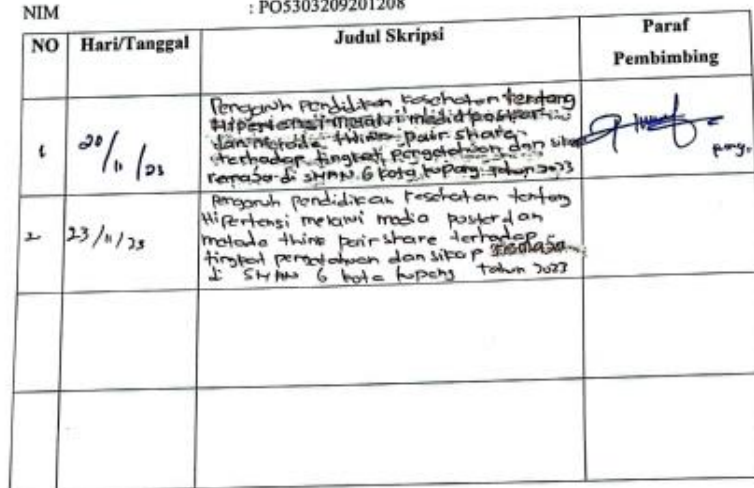 NIM : PO5303209201208
NO Hari/Tanggal Judul Skripsi Paraf Pembimbing
1 20/11/23 Pengaruh Pendidikan kesehatan tentang
Hipertensi melalui media poster
dan metode think pair share
terhadap tingkat pengetahuan dan sikap
remaja di SMAN 6 kota kupang tahun 2023
2 23/11/23 Pengaruh pendidikan kesehatan tentang
Hipertensi melalui media poster dan
metode think pair share terhadap
tingkat pengetahuan dan sikap remaja
di SMAN 6 kota kupang tahun 2023